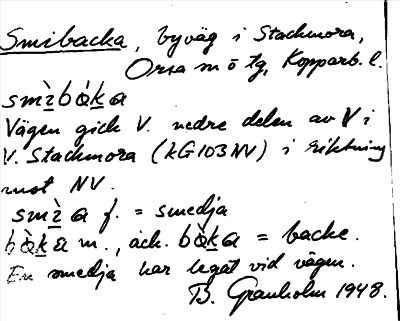 Smibacka, byväg i Stackmora,
Orsa m ö tg, Kopparb. l.
smìbàka
Vägen gick V. nedre delen av V i
V. Stackmora (kG103NV) i riktning
mot NV.
smìa f. = smedja
bàka m., ack. bàka = backe.
En smedja har legat vid vägen.
B. Granholm 1948.